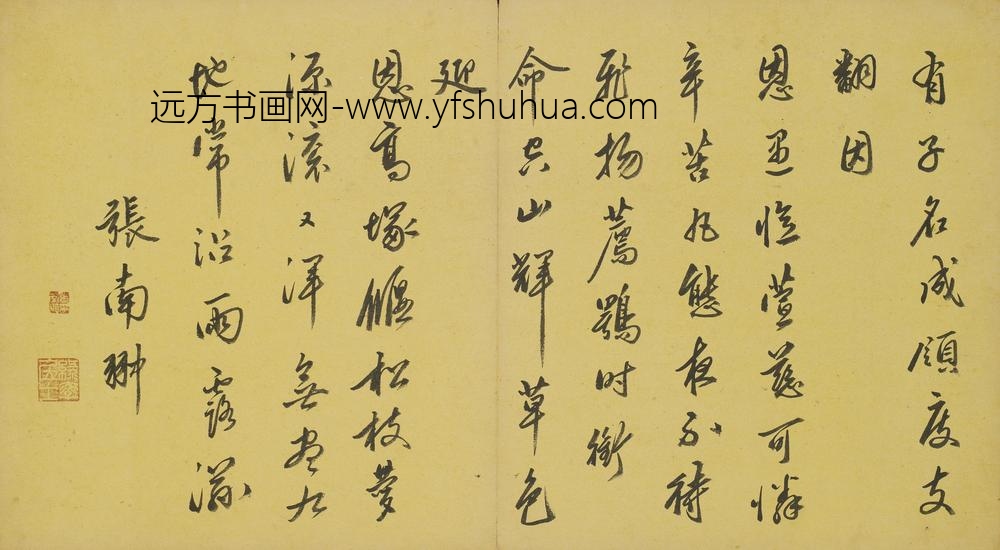 有子名成領度支
翻因
恩
臨萱慈可憐
辛苦丸熊夜不待
飛揚薦鶚时銜
命空山輝草色
迎
恩高塚偃松枝夢
源滾又渾無盡
地常沾雨露滋
張南翀
远方书画网-www.yfshuhua.com